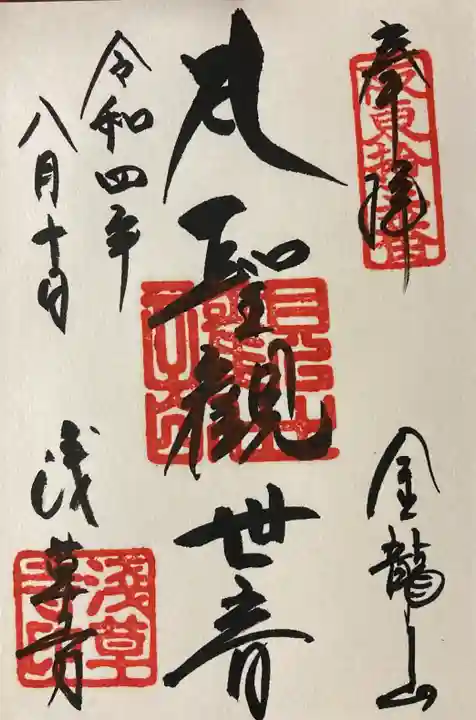 奉拝
坂東拾三番
金龍山
聖観世音
令和四年
八月十日
浅草寺
淺草寺印